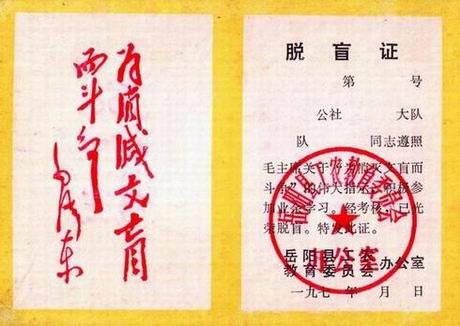 为消滅文盲
而斗争
毛泽东
脱盲证
第 号
公社 大队
队 同志遵照
毛主席关于“为消灭文盲而
斗争”的伟大指示，积极参
加业余学习。经考核，已光
荣脱盲。特发此证。
岳阳县工农
教育委员会办公室
一九七 年 月 日
岳阳县工农教育委员会
办公室